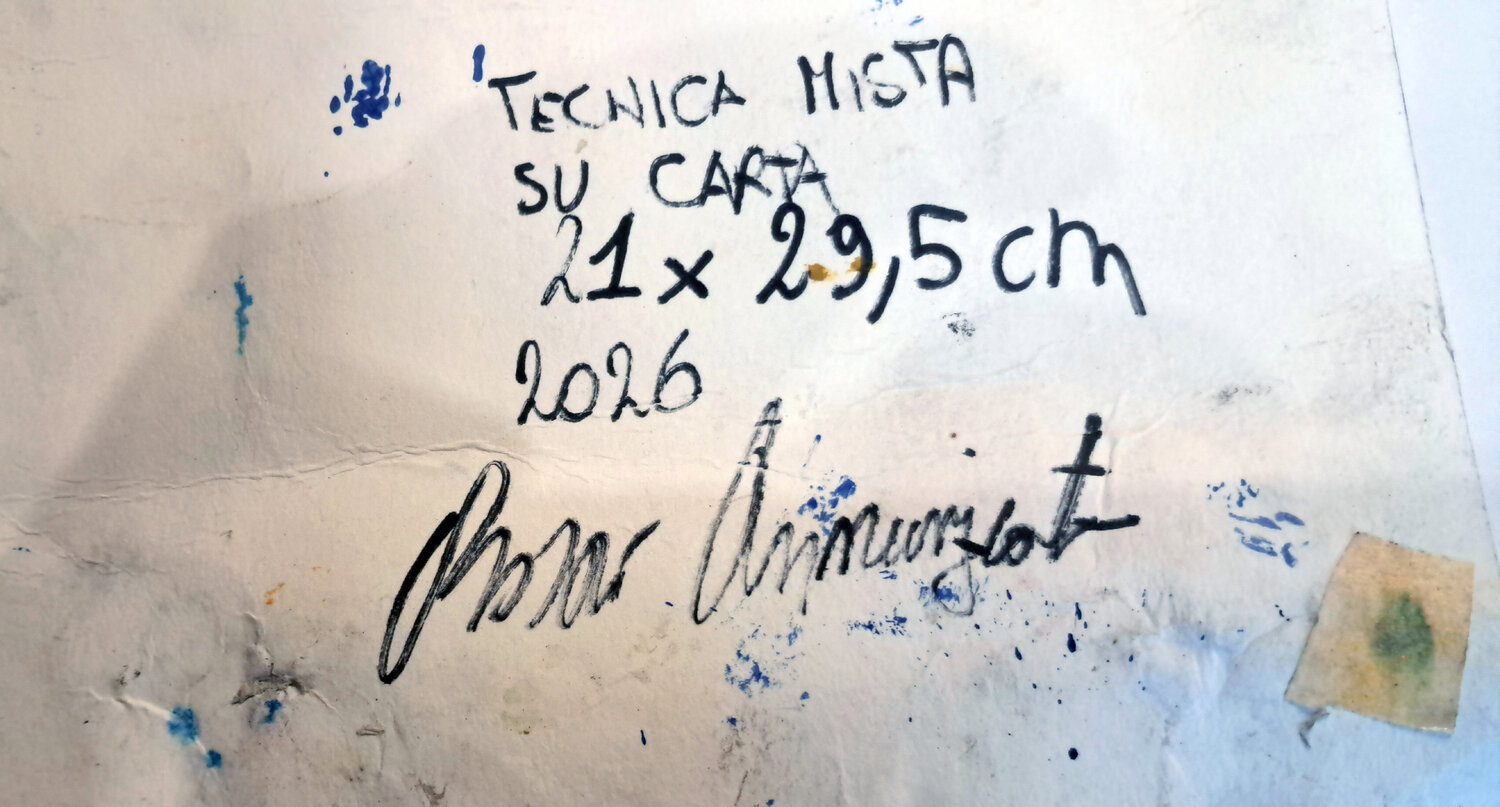 TECNICA MISTA
SU CARTA
21 x 29,5 cm
2026